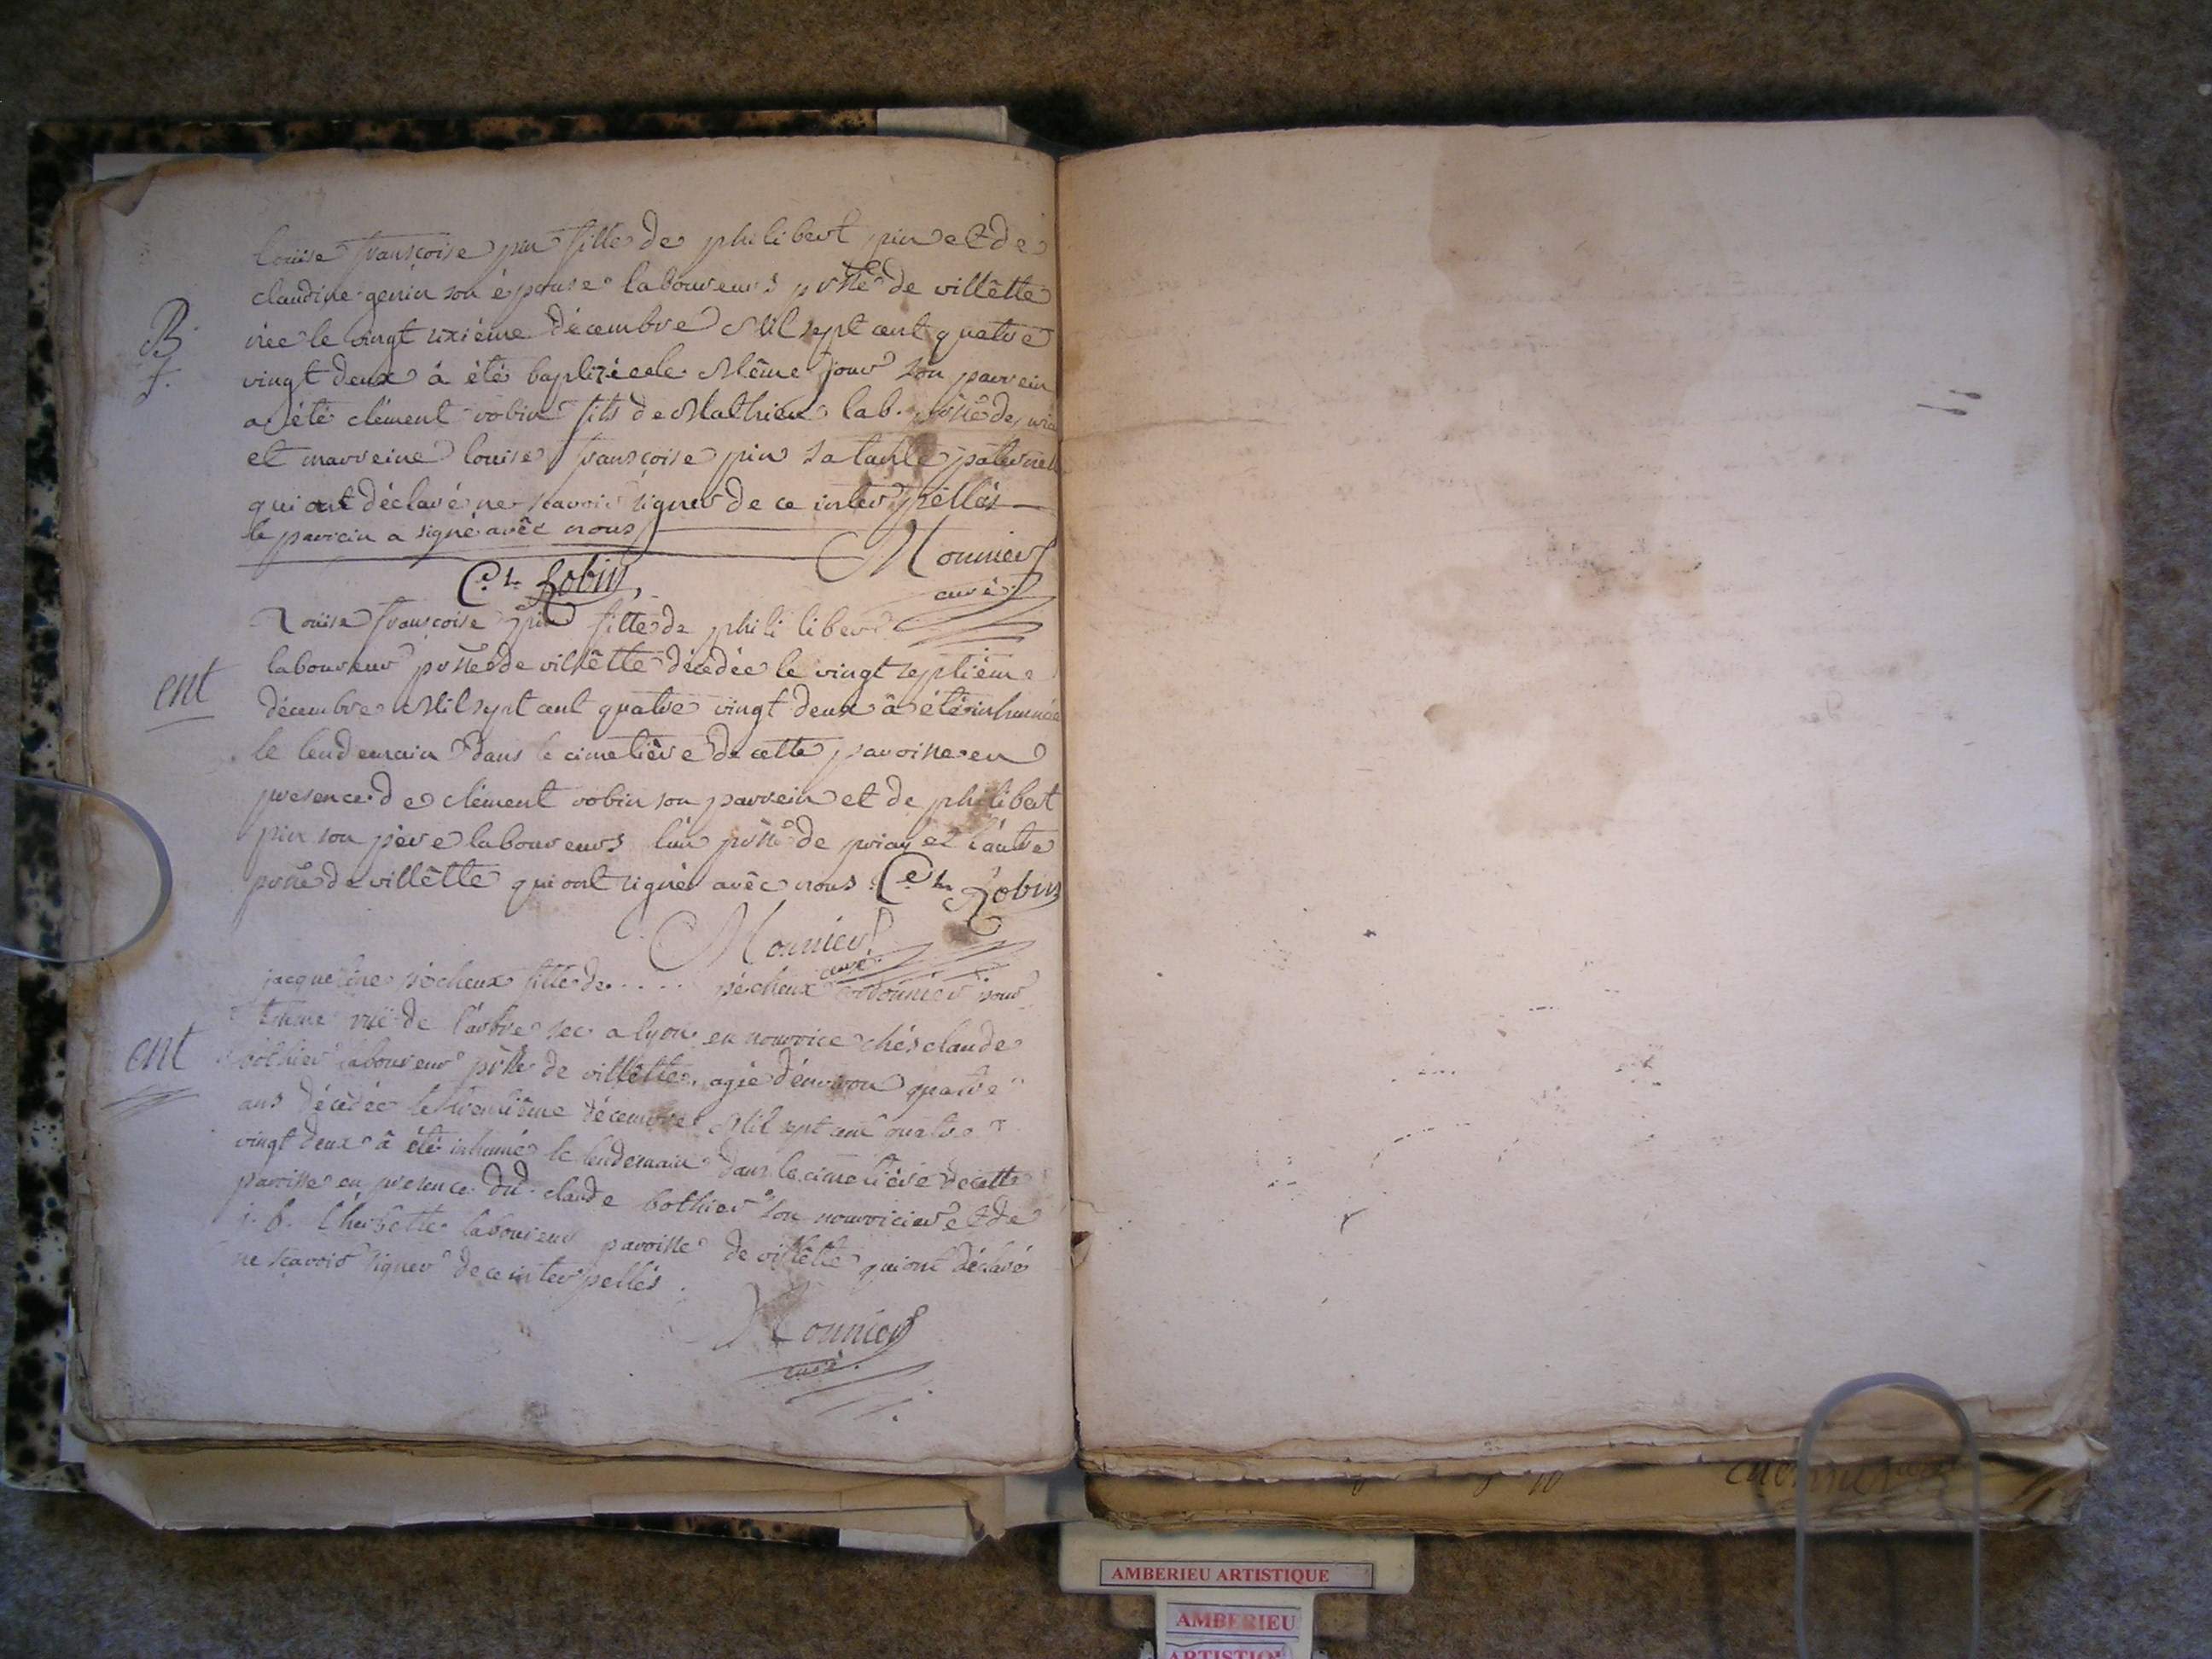 louise françoise pin fille de philibert pin et de
claudine genin son épouse laboureurs psse de villêtte
B
née le vingt sixième décembre Mil sept cent quatre
f.
vingt deux à été baptizée le Même jour son parrein
a été clément robin fils de Mathieu lab. psse de
et marreine louise françoise pin sa tante paternelle
qui ont déclaré ne scavoir signer de ce interpellés
le parrein a signé avêc nous
Monnier
curé
C.t Robin
Louise françoise pin fille de phili liber
ent
laboureur psse de villêtte décédée le vingt septième
décembre Mil sept cent quatre vingt deux â été inhumée
le lendemain dans le cimetière de cette paroisse en
presence de clément robin son parrein et de philibert
pin son père laboureurs l'un psse de priay et l'autre
psse de villêtte qui ont signés avêc nous C.t Robin
Monnier
curé
jacqueline pécheux fille de ..... pécheux cordonnier
rüe de l'arbre sec a lyon en nourrice chés claude
ent
bothier laboureur psse de villêtte, agée d'environ quatre
ans décédée le trentième décembre Mil sept cent quatre
vingt deux â été inhumé le lendemain dans le cimetière de cette
paroisse en presence du claude bothier son nourricier et de
j. b. laboureur paroisse de villêtte qui ont déclaré
ne scavoir signer de ce interpellés.
Monnier
curé.
AMBERIEU ARTISTIQUE
AMBERIEU
ARTISTIQU